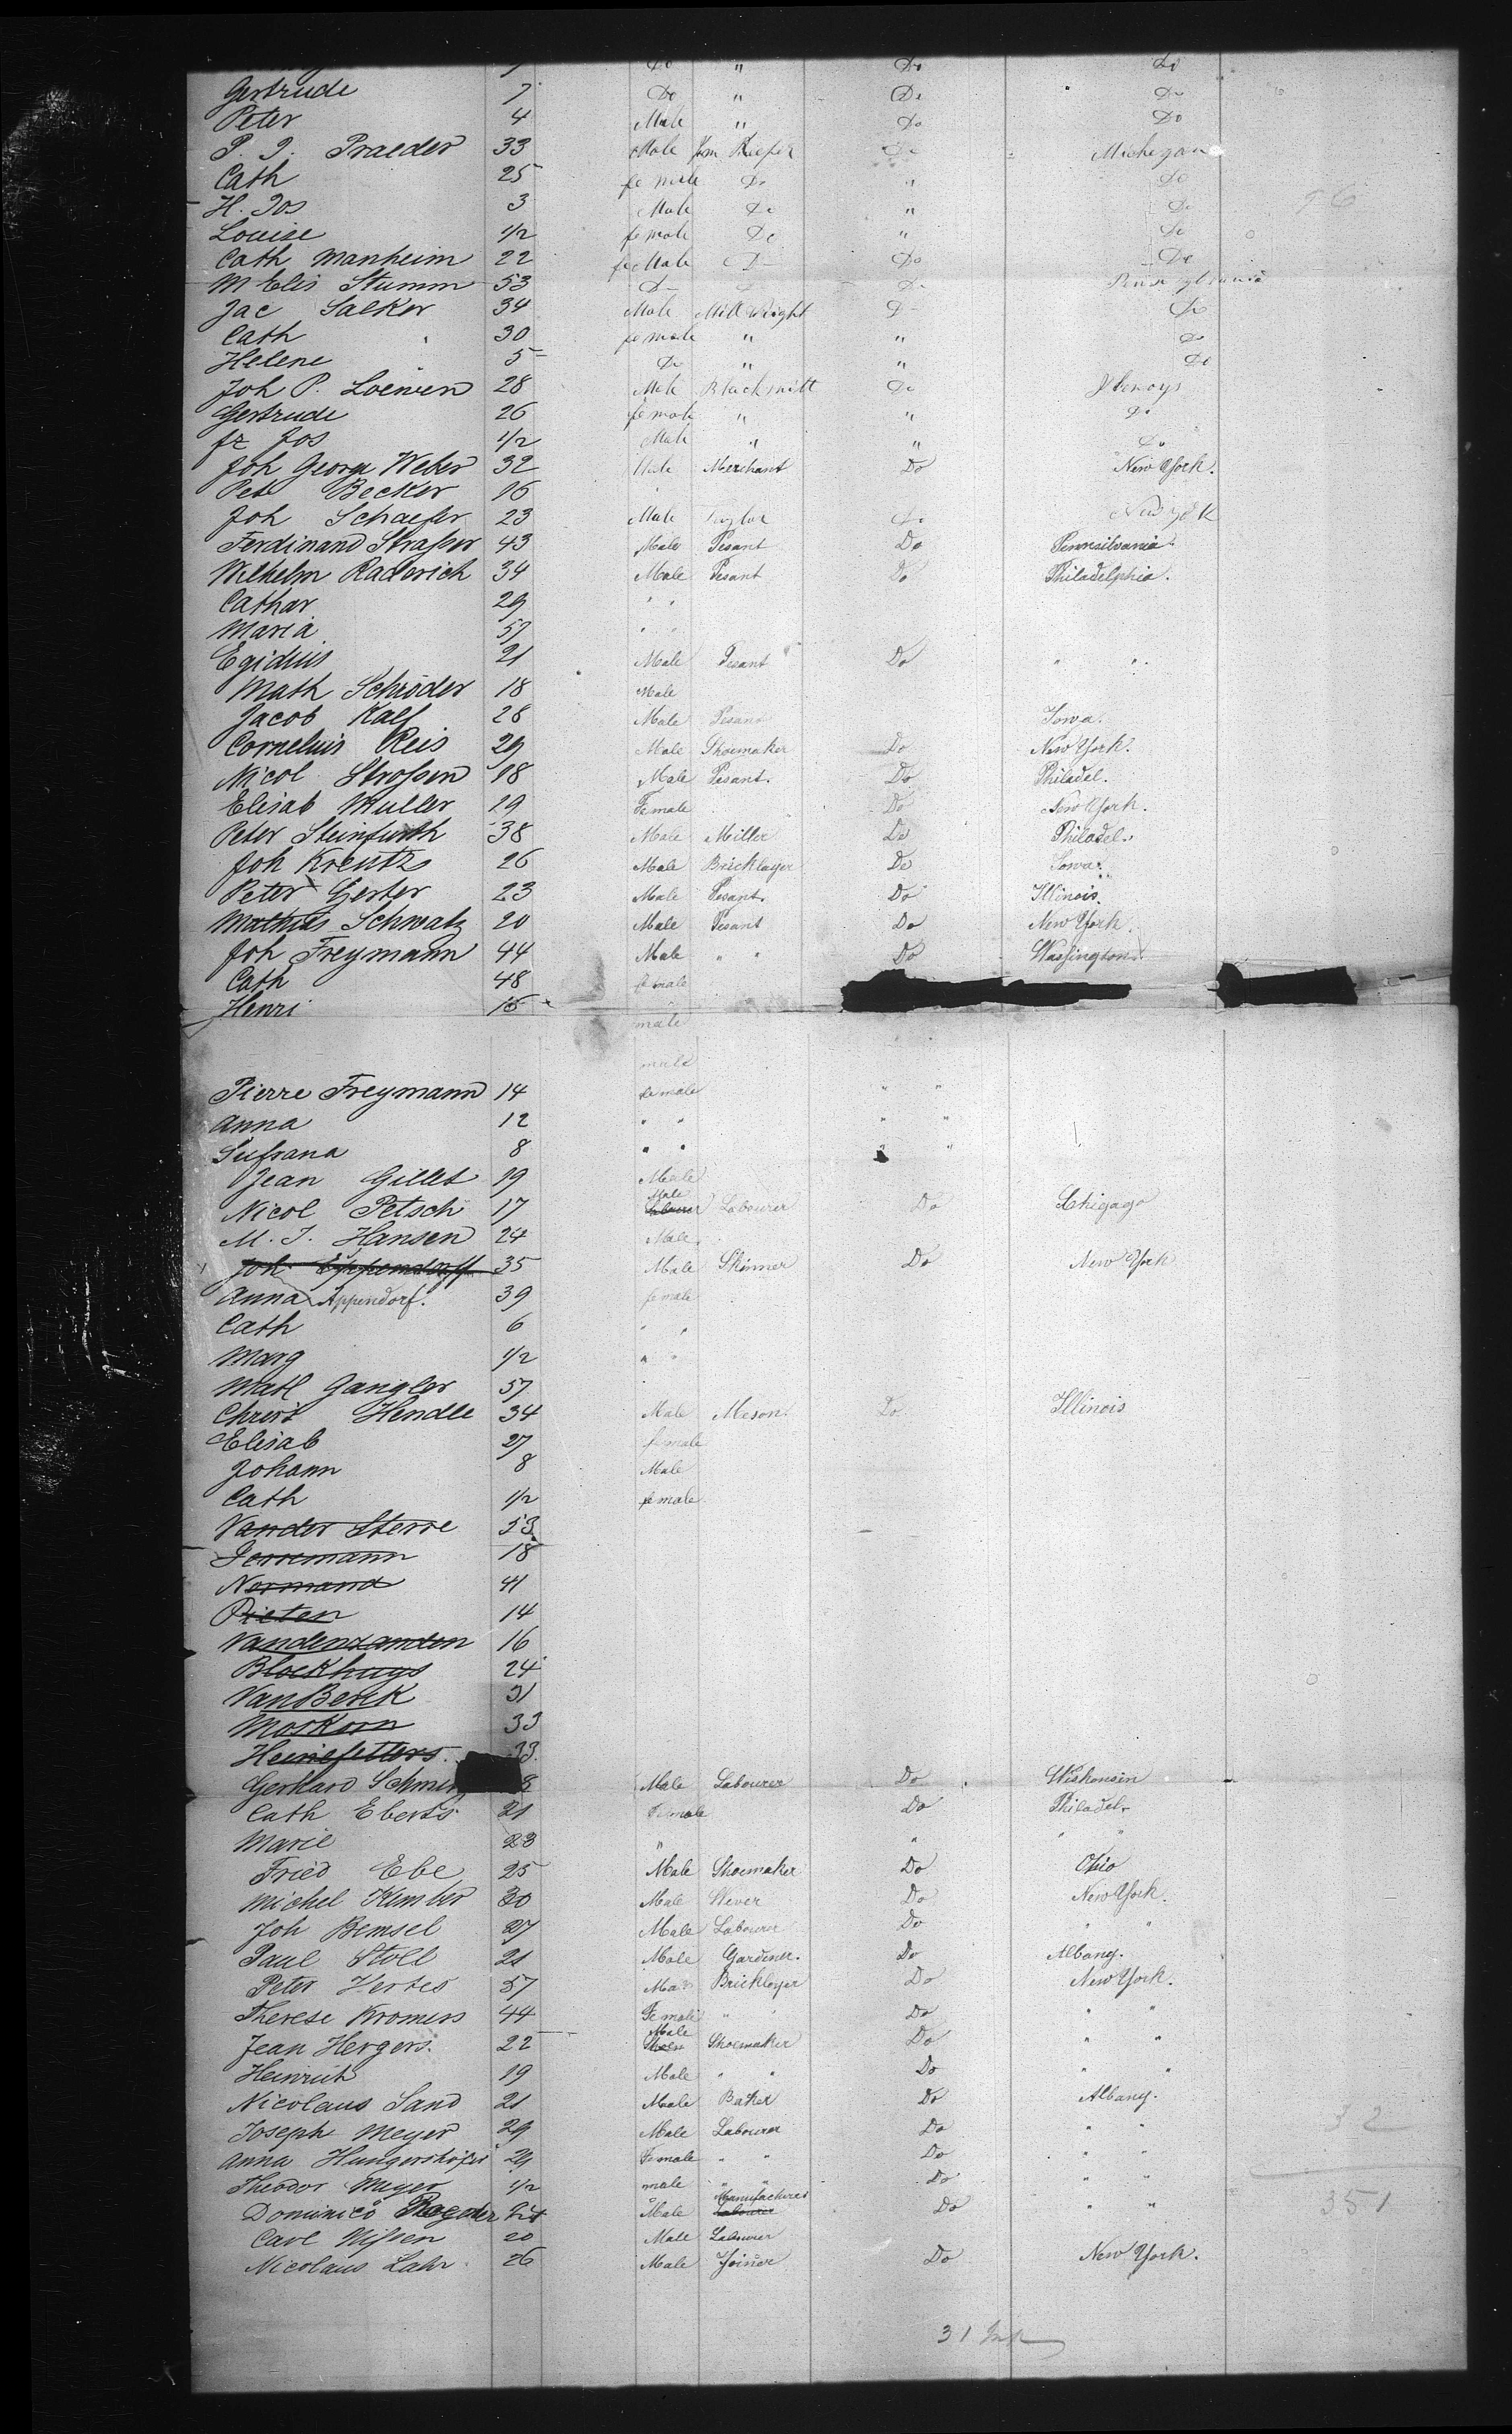 Do " Do Do
Gertrude 7 Do " Do Do
Peter 4 Male " Do Do
P. J. Praeder 33 Male Do Michegan
Cath 25 female Do " Do
H. Jos 3 Male Do " Do
Louise 1/2 female Do " Do
Cath Manheim 22 feMale D- Do Do
M Elis Stumm 53 D- D-
Jac Salker 34 Male Mill Wright D- Do
Cath 30 female " " Do
Helene 5 Do " " Do
Joh P. Loewen 28 Male Blacksmitt Do
Gertrude 26 female " " Do
fr Jos 1/2 Male " " Do
Joh George Weber 32 Male Merchant Do New York.
Pete Becker 16
Joh Schaefer 23 Male Taylor Do New York
Ferdinand Strasser 43 Male Pesant Do Pennsilvania.
Wilhelm Raderich 34 Male Pesant Do Philadelphia.
Cathar 29 " "
Maria 57 " "
Egidius 21 Male Pesant Do " "
Math Schröder 18 Male
Jacob Kalf 28 Male Pesant Iowa.
Cornelius Reis 29 Male Shoemaker Do New York.
Nicol Strossen 18 Male Pesant. Do Philadel.
Elisab Muller 19 Female Do New York.
Peter Steinfurth 38 Male Miller Do Philadel.
Joh Kreutz 26 Male Bricklayer Do Iowa.
Peter Gerber 23 Male Pesant. Do Illinois.
Mathias Schwatz 20 Male Pesant Do New York.
Joh Freymann 44 Male " " Do Wassington.
Cath 48 female
Henri 15
male
male
Pierre Freymann 14 female " "
Anna 12 " " " "
Sussana 8 " " "
Jean Gillet 19 Male
Male
Nicol Petsch 17 Labourer Labourer Do Chigago
M. J. Hansen 24 Male
Joh Eppendorff 35 Male Skinner Do New York
Anna Appendorf. 39 female
Cath 6 " "
Marg 1/2 " "
Matl Gangler 57
Christ Hendle 34 Male Meson. Do Illinois
Elisab 27 female
Johann 8 Male
Cath 1/2 female
Vander Sterre 53
18
Normand 41
Pieten 14
Vandenzanden 16
Blockhuys 24
VanBerck 31
Moskorn 33
Heinefetters. 33
Gerhard 8 Male Labourer Do Wiskonsin
Cath Eberts 21 Female Do Philadel.
Marie 23 " " " "
Fried Ebe 25 Male Shoemaker Do Ohio
Michel Kimber 30 Male Wever Do New York.
Joh Bemsel 27 Male Labourer Do " "
Paul Stoll 21 Male Gardener. Do Albany.
Peter Hertes 57 Male Bricklayer Do New York.
Therese Kromers 44 Female " " Do " "
Male
Jean Hergers. 22 Shoemaker Do " "
Heinrich 19 Male " " Do " "
Nicolaus Sand 21 Male Baker Do Albany.
Joseph Meyer 29 Male Labourer Do " "
32
Anna Hungershöfer 29 Female " " Do " "
Theodor Meyer 1/2 male " " Do " "
Manufacturer
Dominico Male Labourer Do " "
351
Carl Nissen 20 Male Labourer
Nicolaus Lahr 26 Male Joiner Do New York.
31